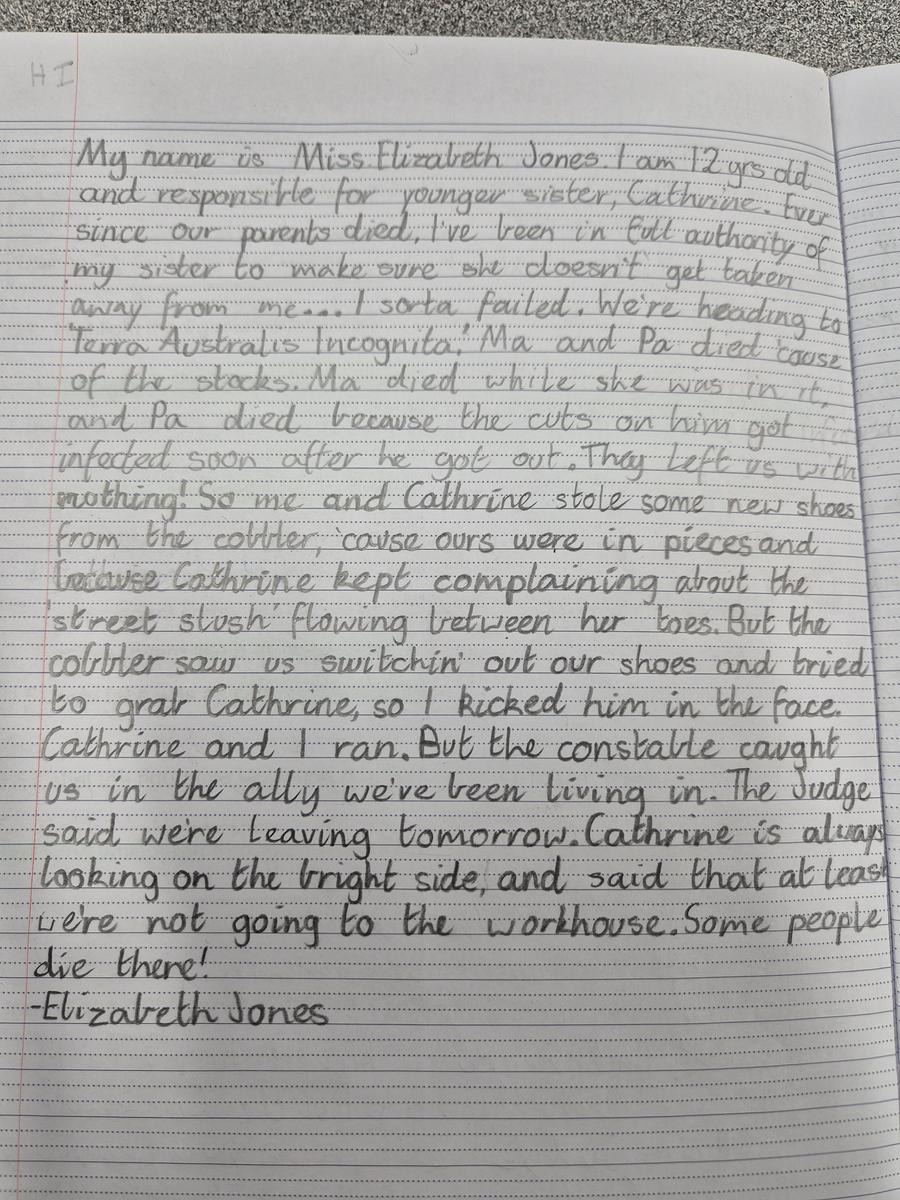 HI
My name is Miss Elizabeth Jones. I am 12 yrs old
and responsible for younger sister, Cathrine. Ever
since our parents died, I've been in full authority of
my sister to make sure she doesn't get taken
away from me... I sorta failed. We're heading to
'Terra Australis Incognita.' Ma and Pa died 'cause
of the stocks. Ma died while she was in it,
and Pa died because the cuts on him got
infected soon after he got out. They left us with
nothing! So me and Cathrine stole some new shoes
from the cobbler, 'cause ours were in pieces and
because Cathrine kept complaining about the
'street slush' flowing between her toes. But the
cobbler saw us switchin' out our shoes and tried
to grab Cathrine, so I kicked him in the face.
Cathrine and I ran. But the constable caught
us in the ally we've been living in. The Judge
said we're leaving tomorrow. Cathrine is always
looking on the bright side, and said that at least
we're not going to the workhouse. Some people
die there!
-Elizabeth Jones